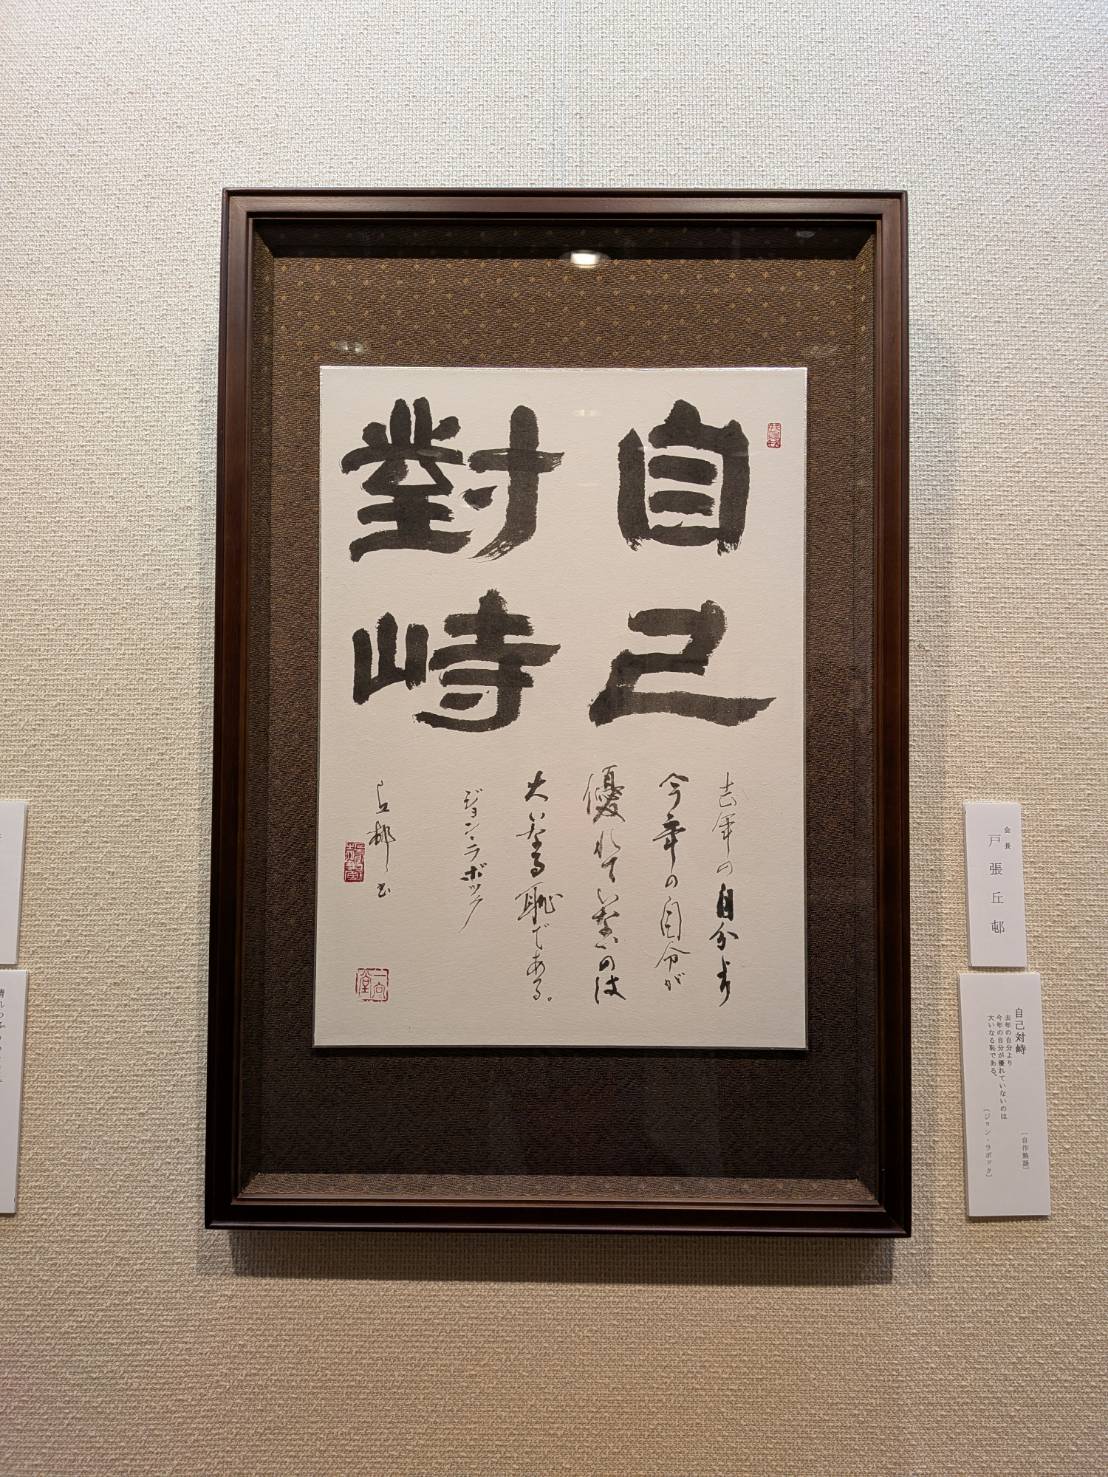 自己
對峙
去年の自分より
今年の自分が
優れていないのは
大いなる恥である。
ジョン・ラボック
丘邨书
一向堂
会長
戸張丘邨
自己対峙
［自作熟語］
去年の自分より
今年の自分が優れていないのは
大いなる恥である。
（ジョン・ラボック）